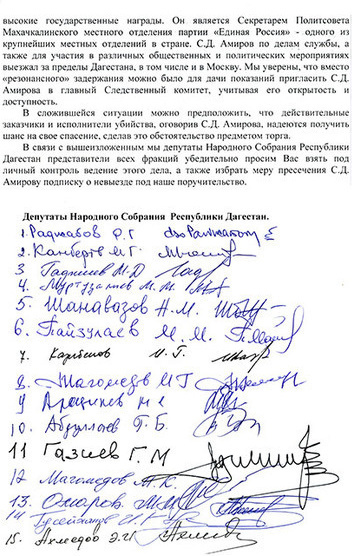 высокие государственные награды. Он является Секретарем Политсовета
Махачкалинского местного отделения партии «Единая Россия» - одного из
крупнейших местных отделений в стране. С.Д. Амиров по делам службы, а
также для участия в различных общественных и политических мероприятиях
выезжал за пределы Дагестана, в том числе и в Москву. Мы уверены, что вместо
«резонансного» задержания можно было для дачи показаний пригласить С.Д.
Амирова в главный Следственный комитет, учитывая его открытость и
доступность.
В сложившейся ситуации можно предположить, что действительные
заказчики и исполнители убийства, оговорив С.Д. Амирова, надеются получить
шанс на свое спасение, сделав это обстоятельство предметом торга.
В связи с вышеизложенным мы депутаты Народного Собрания Республики
Дагестан представители всех фракций убедительно просим Вас взять под
личный контроль ведение этого дела, а также избрать меру пресечения С.Д.
Амирову подписку о невыезде под наше поручительство.
Депутаты Народного Собрания Республики Дагестан.
1. Раджабов Р.Г
2. Канберов М.Г.
3 Гаджиев М.Д
4. Муртузалиев М. М.
5. Шандавазов Н.М.
6. Пайзулаев М. М.
7. И. Г.
8. Магомедов М Г
9 М.
10. Абдуллаев Г.Б.
11 Газиев Г.М
12 Магомедов А.К.
13. Омаров М.М.
14
15. Ахмедов Э.И